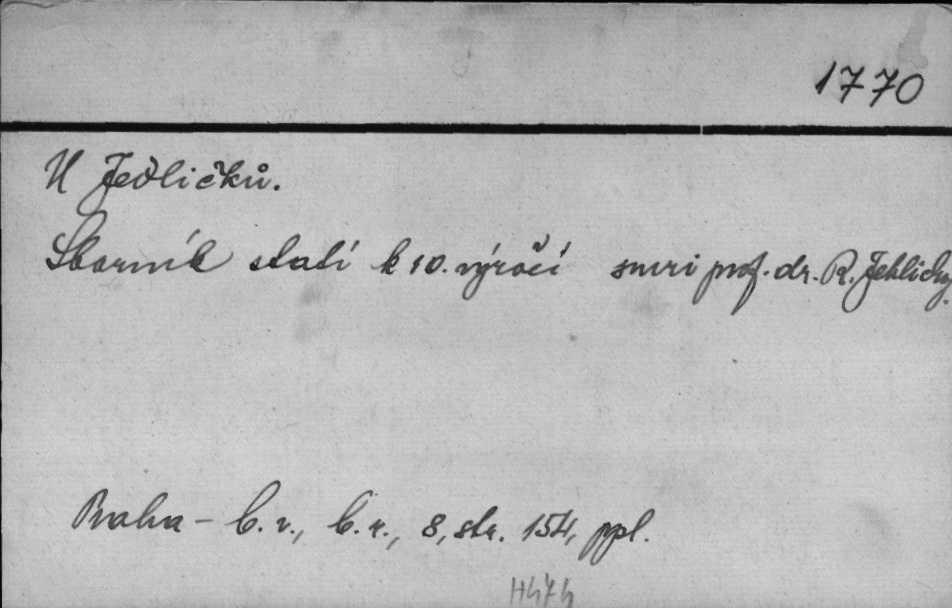 1770
U Jedličků.
Sborník statí k 10. výročí smri prof. dr. R. Jehlicky.
Praha - b. v., b. r., 8, str. 154, ppl.